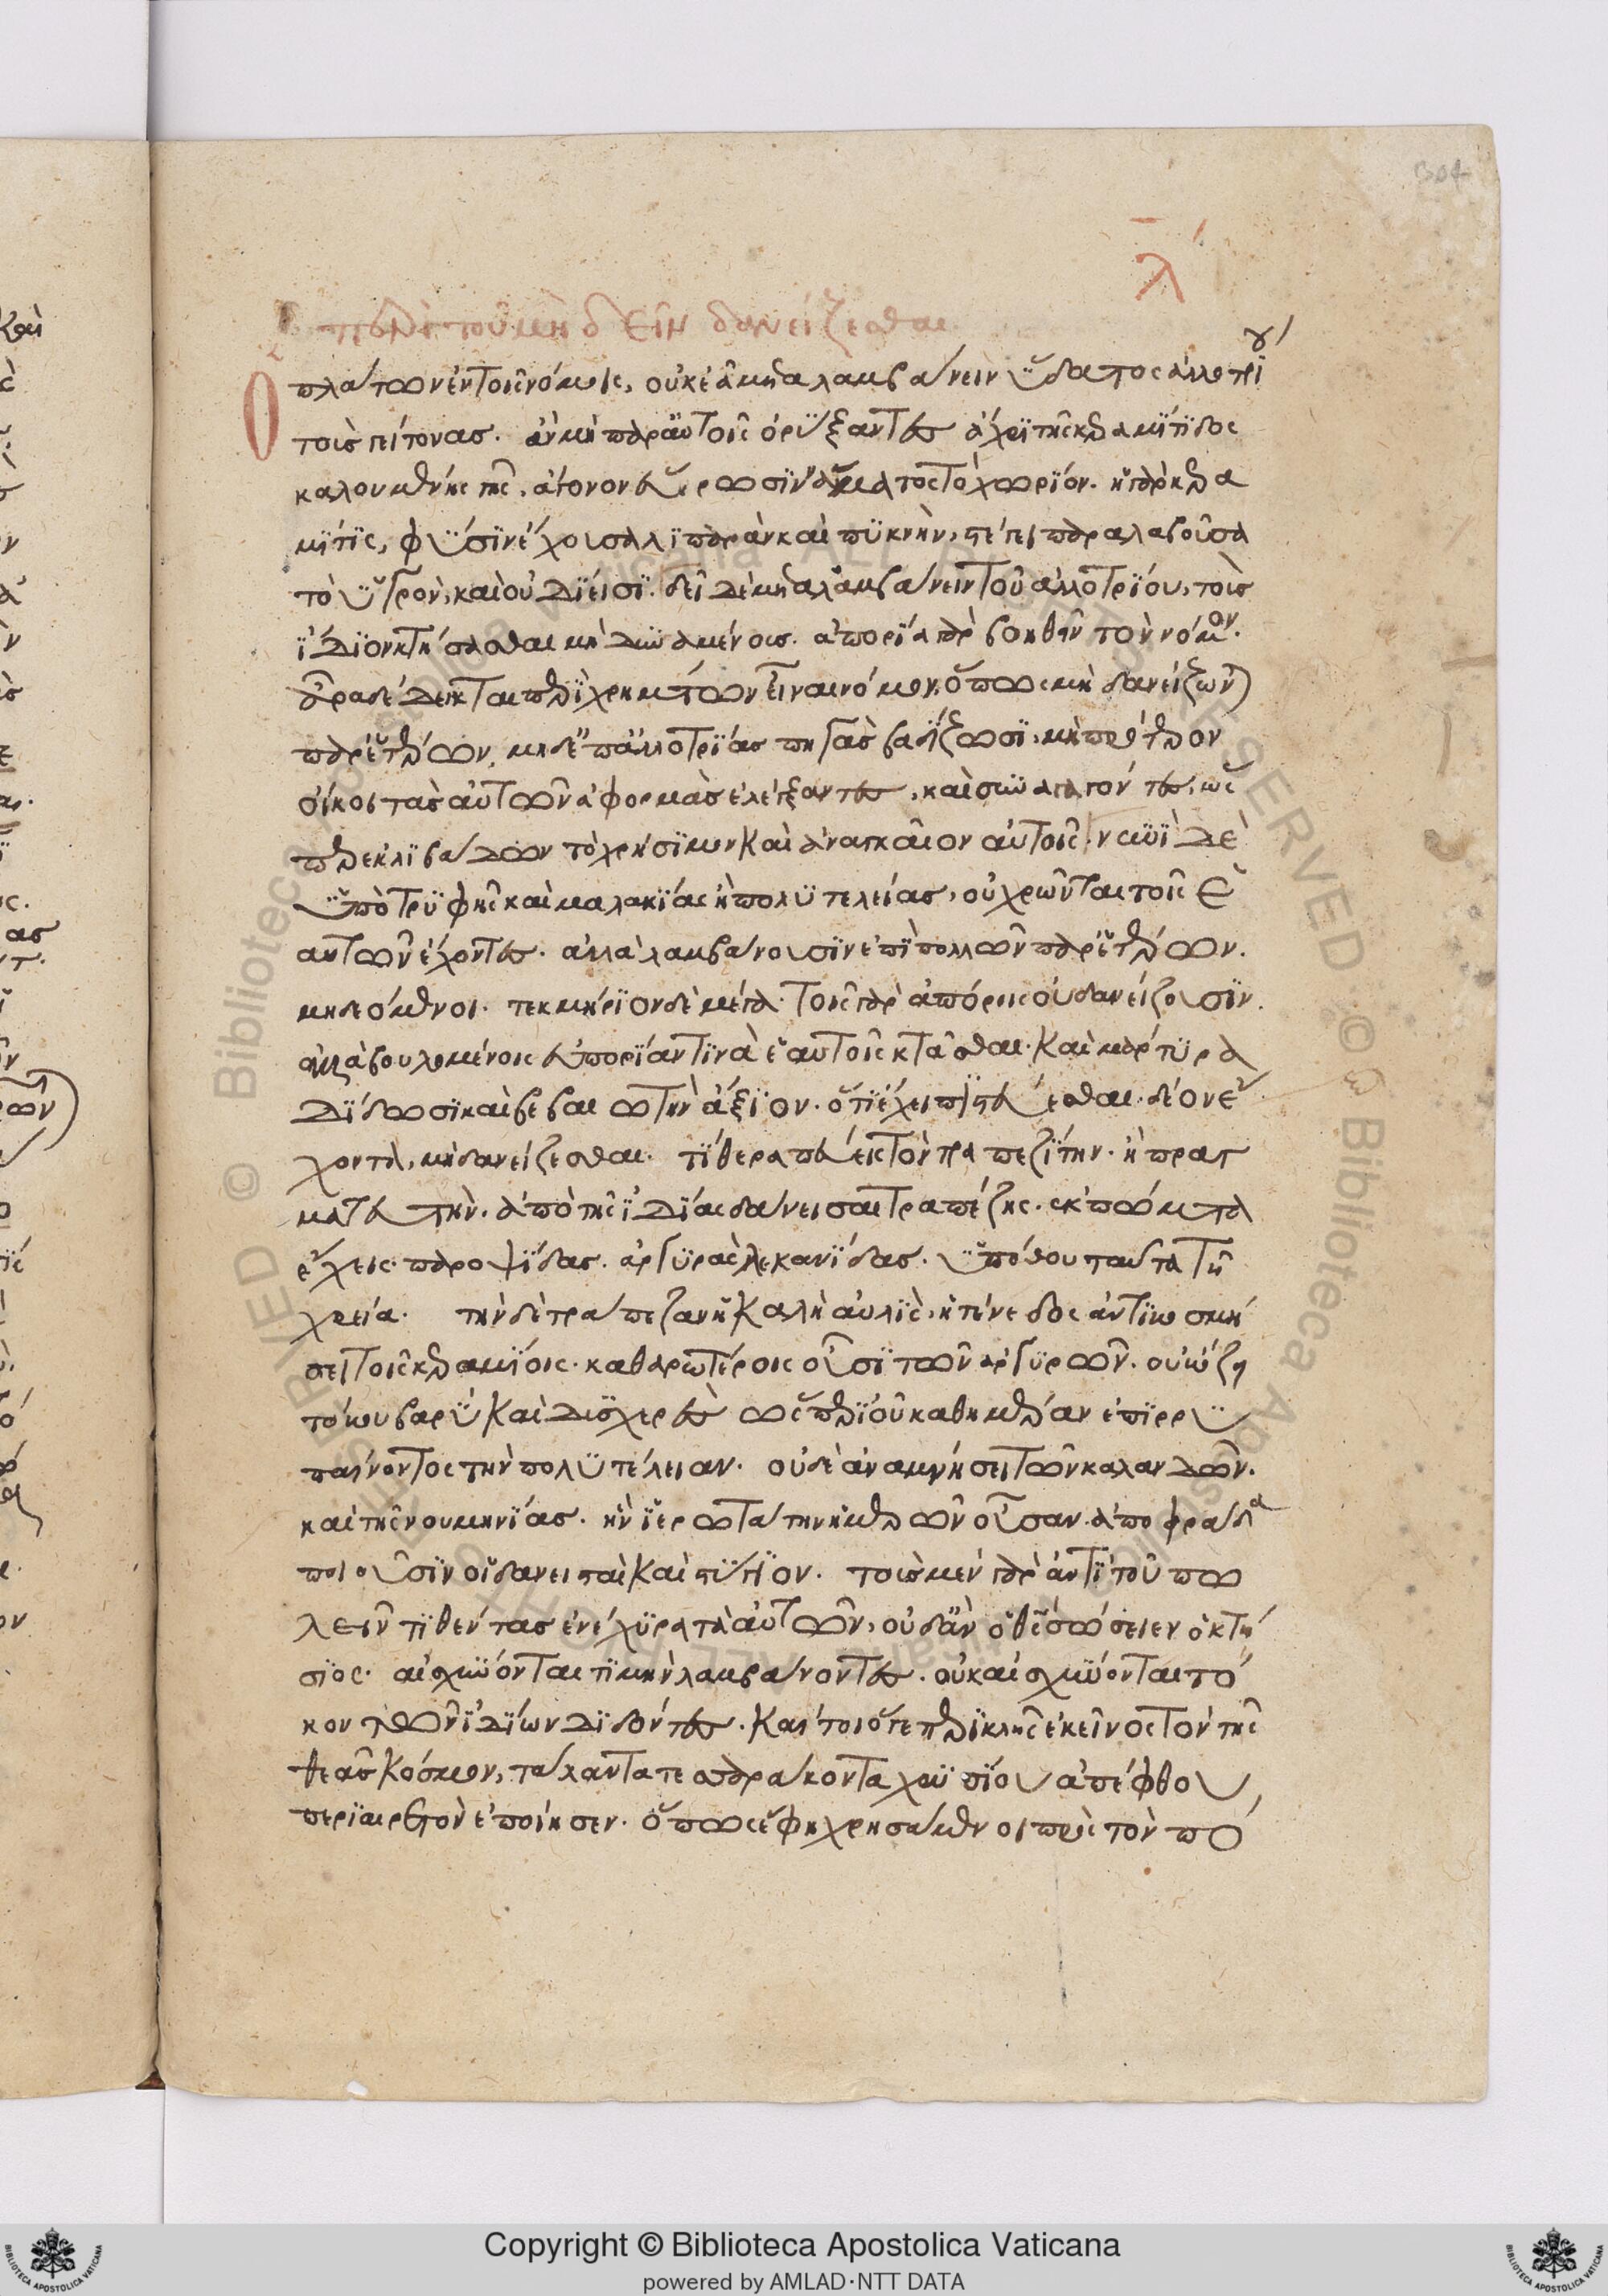 304
λ
περὶ τοῦ μὴ δεῖν δανείζεσθαι
Ὁ πλάτων ἐν τοῖς νόμοις, οὐκ ἐᾷ μεταλαμβάνειν ὕδατος ἀλλοτρίου
τοὺς γείτονας. ἂν μὴ παρ' αὑτοῖς ὀρύξαντες ἄχρι τῆς κεραμίτιδος
καλουμένης γῆς, ἄγονον εὕρωσι νάματος τὸ χωρίον. ἡ γὰρ κερα
μῖτις, φύσιν ἔχουσα λιπαρὰν καὶ πυκνὴν, στέγει παραλαβοῦσα
τὸ ὑγρὸν, καὶ οὐ διίησι. δεῖ δὲ μεταλαμβάνειν τοῦ ἀλλοτρίου, τοὺς
ἴδιον κτήσασθαι μὴ δυναμένους. ἀπορίᾳ γὰρ βοηθεῖν τὸν νόμον.
ἆρα δὲ δεῖ καὶ περὶ χρημάτων εἶναι νόμον, ὅπως μὴ δανείζωνται
παρ' ἑτέρων, μηδ' ἐπ' ἀλλοτρίας πηγὰς βαδίζωσι, μὴ πρότερον
οἴκοι τὰς αὑτῶν ἀφορμὰς ἐλέγξαντες, καὶ συναγαγόντες, ὡς
περ ἐκ λιβάδων τὸ χρήσιμον καὶ ἀναγκαῖον αὐτοῖς. νυνὶ δὲ
ὑπὸ τρυφῆς καὶ μαλακίας ἢ πολυτελείας, οὐ χρῶνται τοῖς ἑ
αυτῶν ἔχοντες. ἀλλὰ λαμβάνουσιν ἐπὶ πολλῶν παρ' ἑτέρων.
μὴ δεόμενοι. τεκμήριον δὲ μέγα. τοῖς γὰρ ἀπόροις οὐ δανείζουσιν.
ἀλλὰ βουλομένοις εὐπορίαν τινὰ ἑαυτοῖς κτᾶσθαι. καὶ μάρτυρα
δίδωσι καὶ βεβαιωτὴν ἄξιον. ὅτι ἔχει πιστεύεσθαι. δέον ἔ
χοντα, μὴ δανείζεσθαι. τί θεραπεύεις τὸν τραπεζίτην. ἢ πραγ
ματευτήν. ἀπὸ τῆς ἰδίας δάνεισαι τραπέζης. ἐκπώματα
ἔχεις παροψίδας. ἀργυρᾶς λεκανίδας. ὑπόθου ταῦτα τῇ
χρείᾳ. τὴν δὲ τράπεζαν ἡ καλὴ αὐλὶς, ἢ τένεδος ἀντικοσμή
σει τοῖς κεραμίοις. καθαρωτέροις οὖσι τῶν ἀργυρῶν. οὐκ ὄζει
τόκου βαρὺ καὶ δυσχερὲς ὥσπερ ἰοῦ καθ' ἡμέραν ἐπιρρυ
παίνοντος τὴν πολυτέλειαν. οὐδὲ ἀναμνήσει τῶν καλανδῶν.
καὶ τῆς νουμηνίας. ἣν ἱερωτάτην ἡμερῶν οὖσαν ἀποφράδα
ποιοῦσιν οἱ δανεισταὶ καὶ στύγιον. τοὺς μὲν γὰρ ἀντὶ τοῦ πω
λεῖν τιθέντας ἐνέχυρα τὰ αὑτῶν, οὐδ' ἂν ὁ θεὸς σώσειεν ὁ κτή
σιος. αἰσχύνονται τιμὴν λαμβάνοντες. οὐκ αἰσχύνονται τό
κον τῶν ἰδίων διδόντες. καίτοι ὅ γε περικλῆς ἐκεῖνος τὸν τῆς
θεᾶς κόσμον, τάλαντα τεσσαράκοντα χρυσίου ἀπέφθου,
περιαιρετὸν ἐποίησεν. ὅπως ἔφη χρησάμενοι πρὸς τὸν πό
Copyright © Biblioteca Apostolica Vaticana
powered by AMLAD·NTT DATA